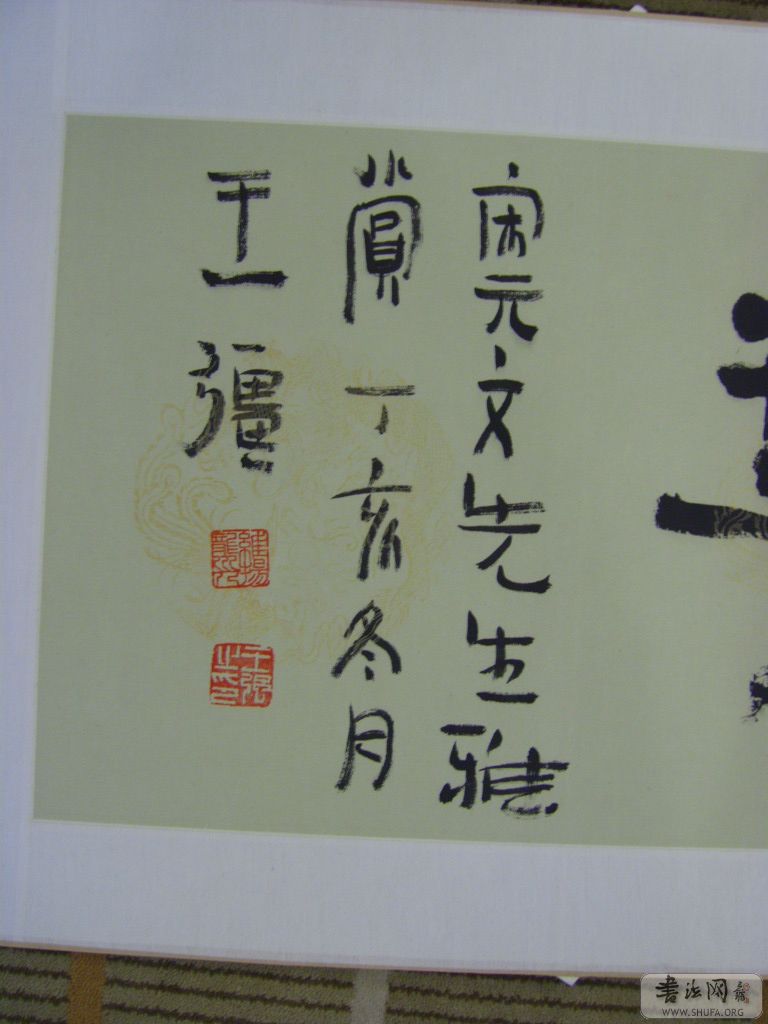 宋元文先生雅
賞丁亥冬月
王彊
書法网
WWW.SHUFA.ORG